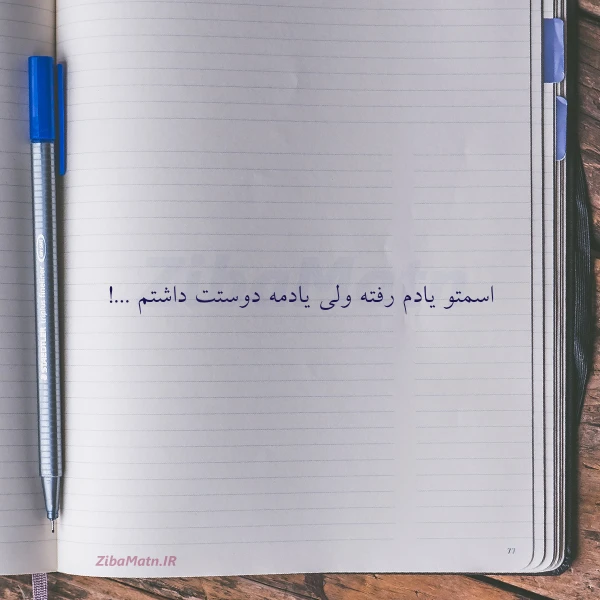 اسمتو یادم رفته ولی یادمه دوستت داشتم ...!
ZibaMatn.IR